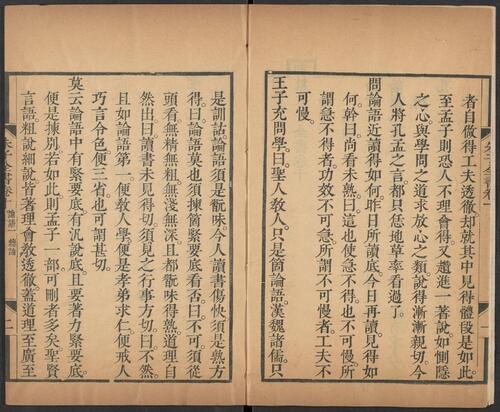 者自做得工夫透徹却就其中見得體段是如此
至孟子則恐人不理會得又趲進一著說如惻隱
之心與學問之道求放心之類說得漸漸親切今
人將孔孟之言都只恁地草率看過了
問論語近讀得如何昨日所讀底今日再讀見得如
何幹曰尚看未熟曰這也使急不得也不可慢所
謂急不得者功效不可急所謂不可慢者工夫不
可慢
王子充問學曰聖人教人只是箇論語漢魏諸儒只
是訓詁論語須是翫味今人讀書傷快須是熟方
得曰論語莫也須揀箇緊要底看否曰不可須從
頭看無精無粗無淺無深且都翫味得熟道理自
然出曰讀書未見得切須見之行事方切曰不然
且如論語第一便教人學便是孝弟求仁便戒人
巧言令色便三省也可謂甚切
莫云論語中有緊要底有汎說底且要著力緊要底
便是揀別若如此則孟子一部可刪者多矣聖賢
言語粗說細說皆著理會教透徹蓋道理至廣至
論語一 總論
二